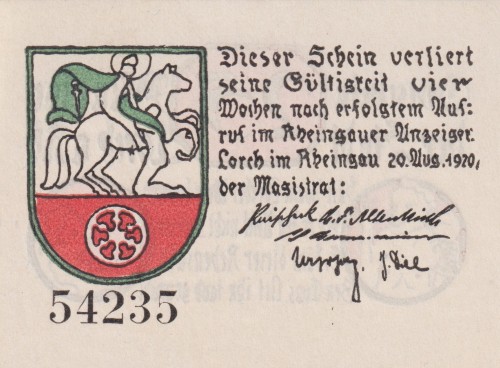 Dieser Schein verliert
seine Gültigkeit vier
Wochen nach erfolgtem Auf-
ruf im Rheingauer Anzeiger.
Lorch im Rheingau 20. Aug. 1920,
der Magistrat:
J. Diel
54235